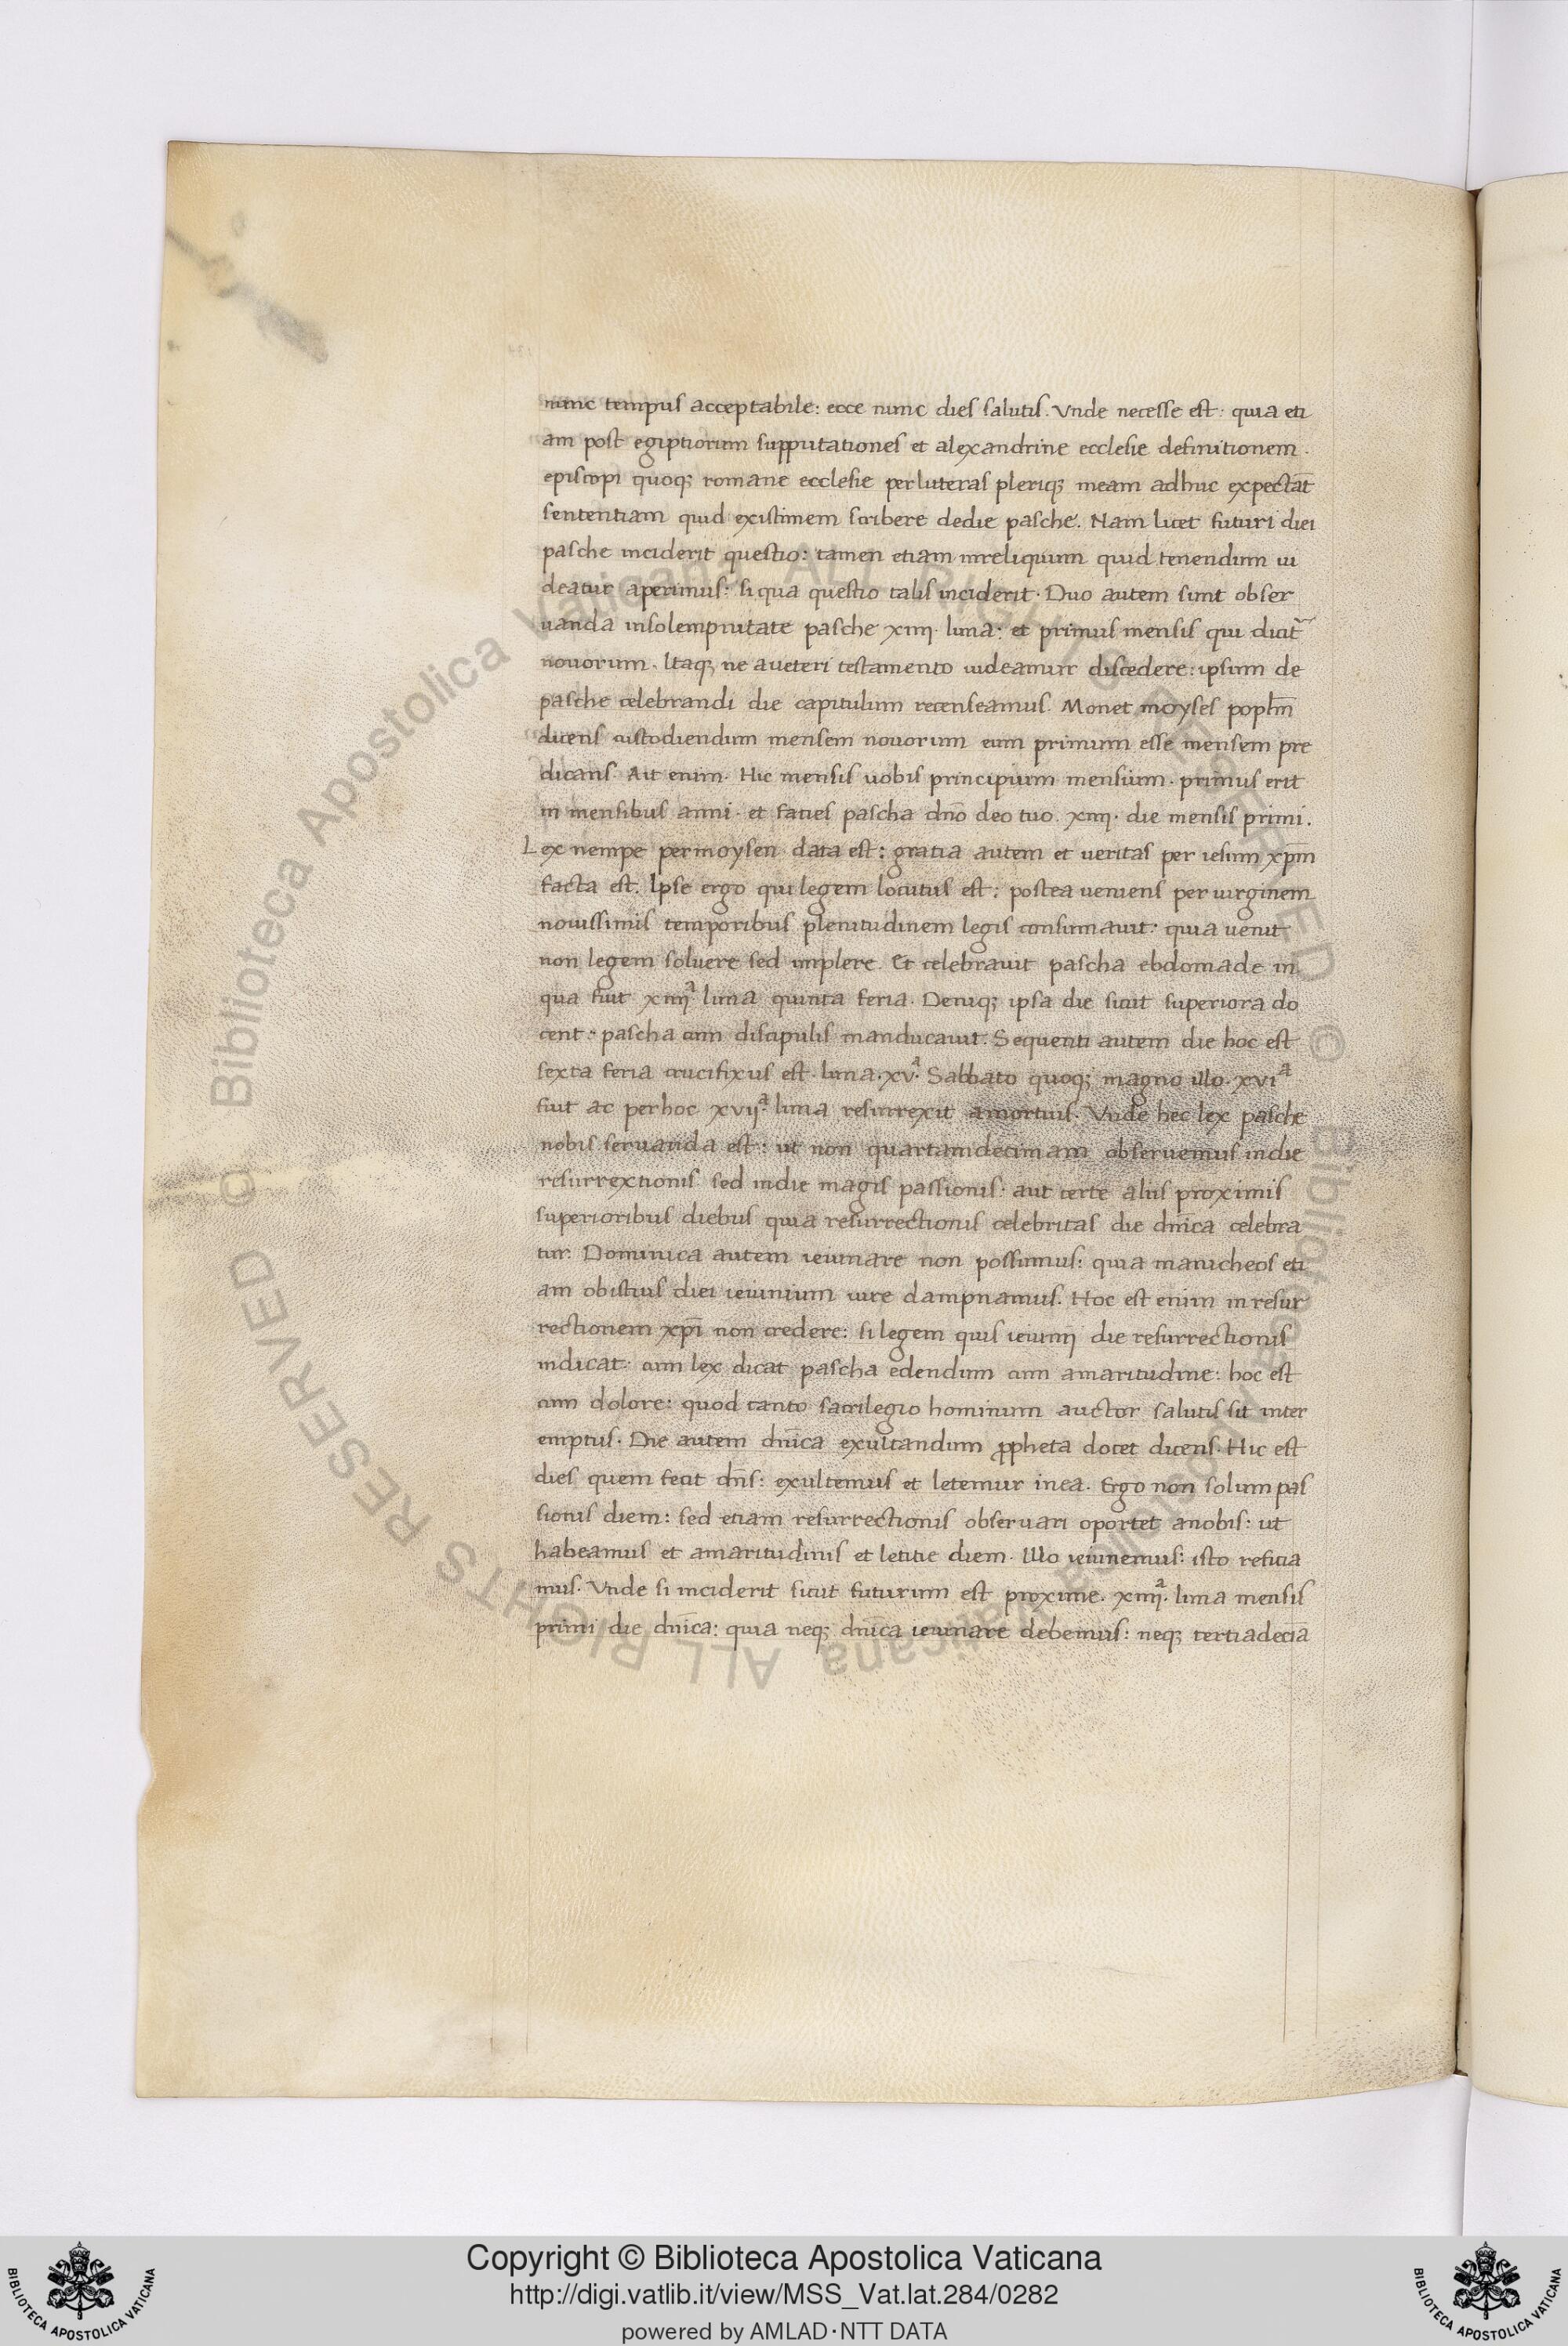 nunc tempus acceptabile: ecce nunc dies salutis. Vnde necesse est: quia eti
am post egiptiorum supputationes et alexandrine ecclesie definitionem.
episcopi quoq; romane ecclesie per litteras pleriq; meam adhuc expectāt
sententiam quid existimem scribere dedie pasche. Nam licet futuri diei
pasche inciderit questio: tamen etiam inreliquum quid tenendum ui
deatur aperimus: siqua questio talis inciderit. Duo autem sunt obser
uanda insolempnitate pasche xiiij. luna: et primus mensis qui dicit̃
nouorum. Itaq; ne aueteri testamento uideamur discedere: ipsum de
pasche celebrandi die capitulum recenseamus. Monet moyses popłm
dicens custodiendum mensem nouorum eum primum esse mensem pre
dicans. Ait enim. Hic mensis uobis principium mensium. primus erit
in mensibus anni. et facies pascha dn̄o deo tuo. xiiij. die mensis primi.
Lex nempe permoysen data est: gratia autem et ueritas per iesum xp̄m
facta est. Ipse ergo qui legem locutus est: postea ueniens per uirginem
nouissimis temporibus plenitudinem legis consumauit: quia uenit
non legem soluere sed implere. Et celebrauit pascha ebdomade in
qua fuit xiiijª luna quinta feria. Deniq; ipsa die sicut superiora do
cent: pascha cum discipulis manducauit. Sequenti autem die hoc est
sexta feria crucifixus est. luna. xvª. Sabbato quoq; magno illo. xviª
fuit ac perhoc xvijª. luna resurrexit amortuis. Vnde hec lex pasche
nobis seruanda est: ut non quartamdecimam obseruemus indie
resurrextionis sed indie magis passionis: aut certe aliis proximis
superioribus diebus quia resurrectionis celebritas die dn̄ica celebra
tur. Dominica autem ieiunare non possumus: quia manicheos eti
am obistius diei ieiunium iure dampnamus. Hoc est enim in resur
rectionem xp̄i non credere: si legem quis ieiunij die resurrectionis
indicat: cum lex dicat pascha edendum cum amaritudine: hoc est
cum dolore: quod tanto sacrilegio hominum auctor salutis sit inter
emptus. Die autem dn̄ica exultandum ꝓpheta docet dicens. Hic est
dies quem fecit dn̄s: exultemus et letemur inea. Ergo non solum pas
sionis diem: sed etiam resurrectionis obseruari oportet anobis: ut
habeamus et amaritudinis et letitie diem. Illo ieiunemus: isto reficia
mus. Vnde si inciderit sicut futurum est proxime. xiiijª. luna mensis
primi die dn̄ica: quia neq; dn̄ica ieiunare debemus: neq; tertiadeciā
© Biblioteca Apostolica Vaticana ALL RIGHTS RESERVED © Biblioteca Apostolica Vaticana ALL RIGHTS RESERVED
Copyright © Biblioteca Apostolica Vaticana
http://digi.vatlib.it/view/MSS_Vat.lat.284/0282
powered by AMLAD·NTT DATA
BIBLIOTECA APOSTOLICA VATICANA
BIBLIOTECA APOSTOLICA VATICANA